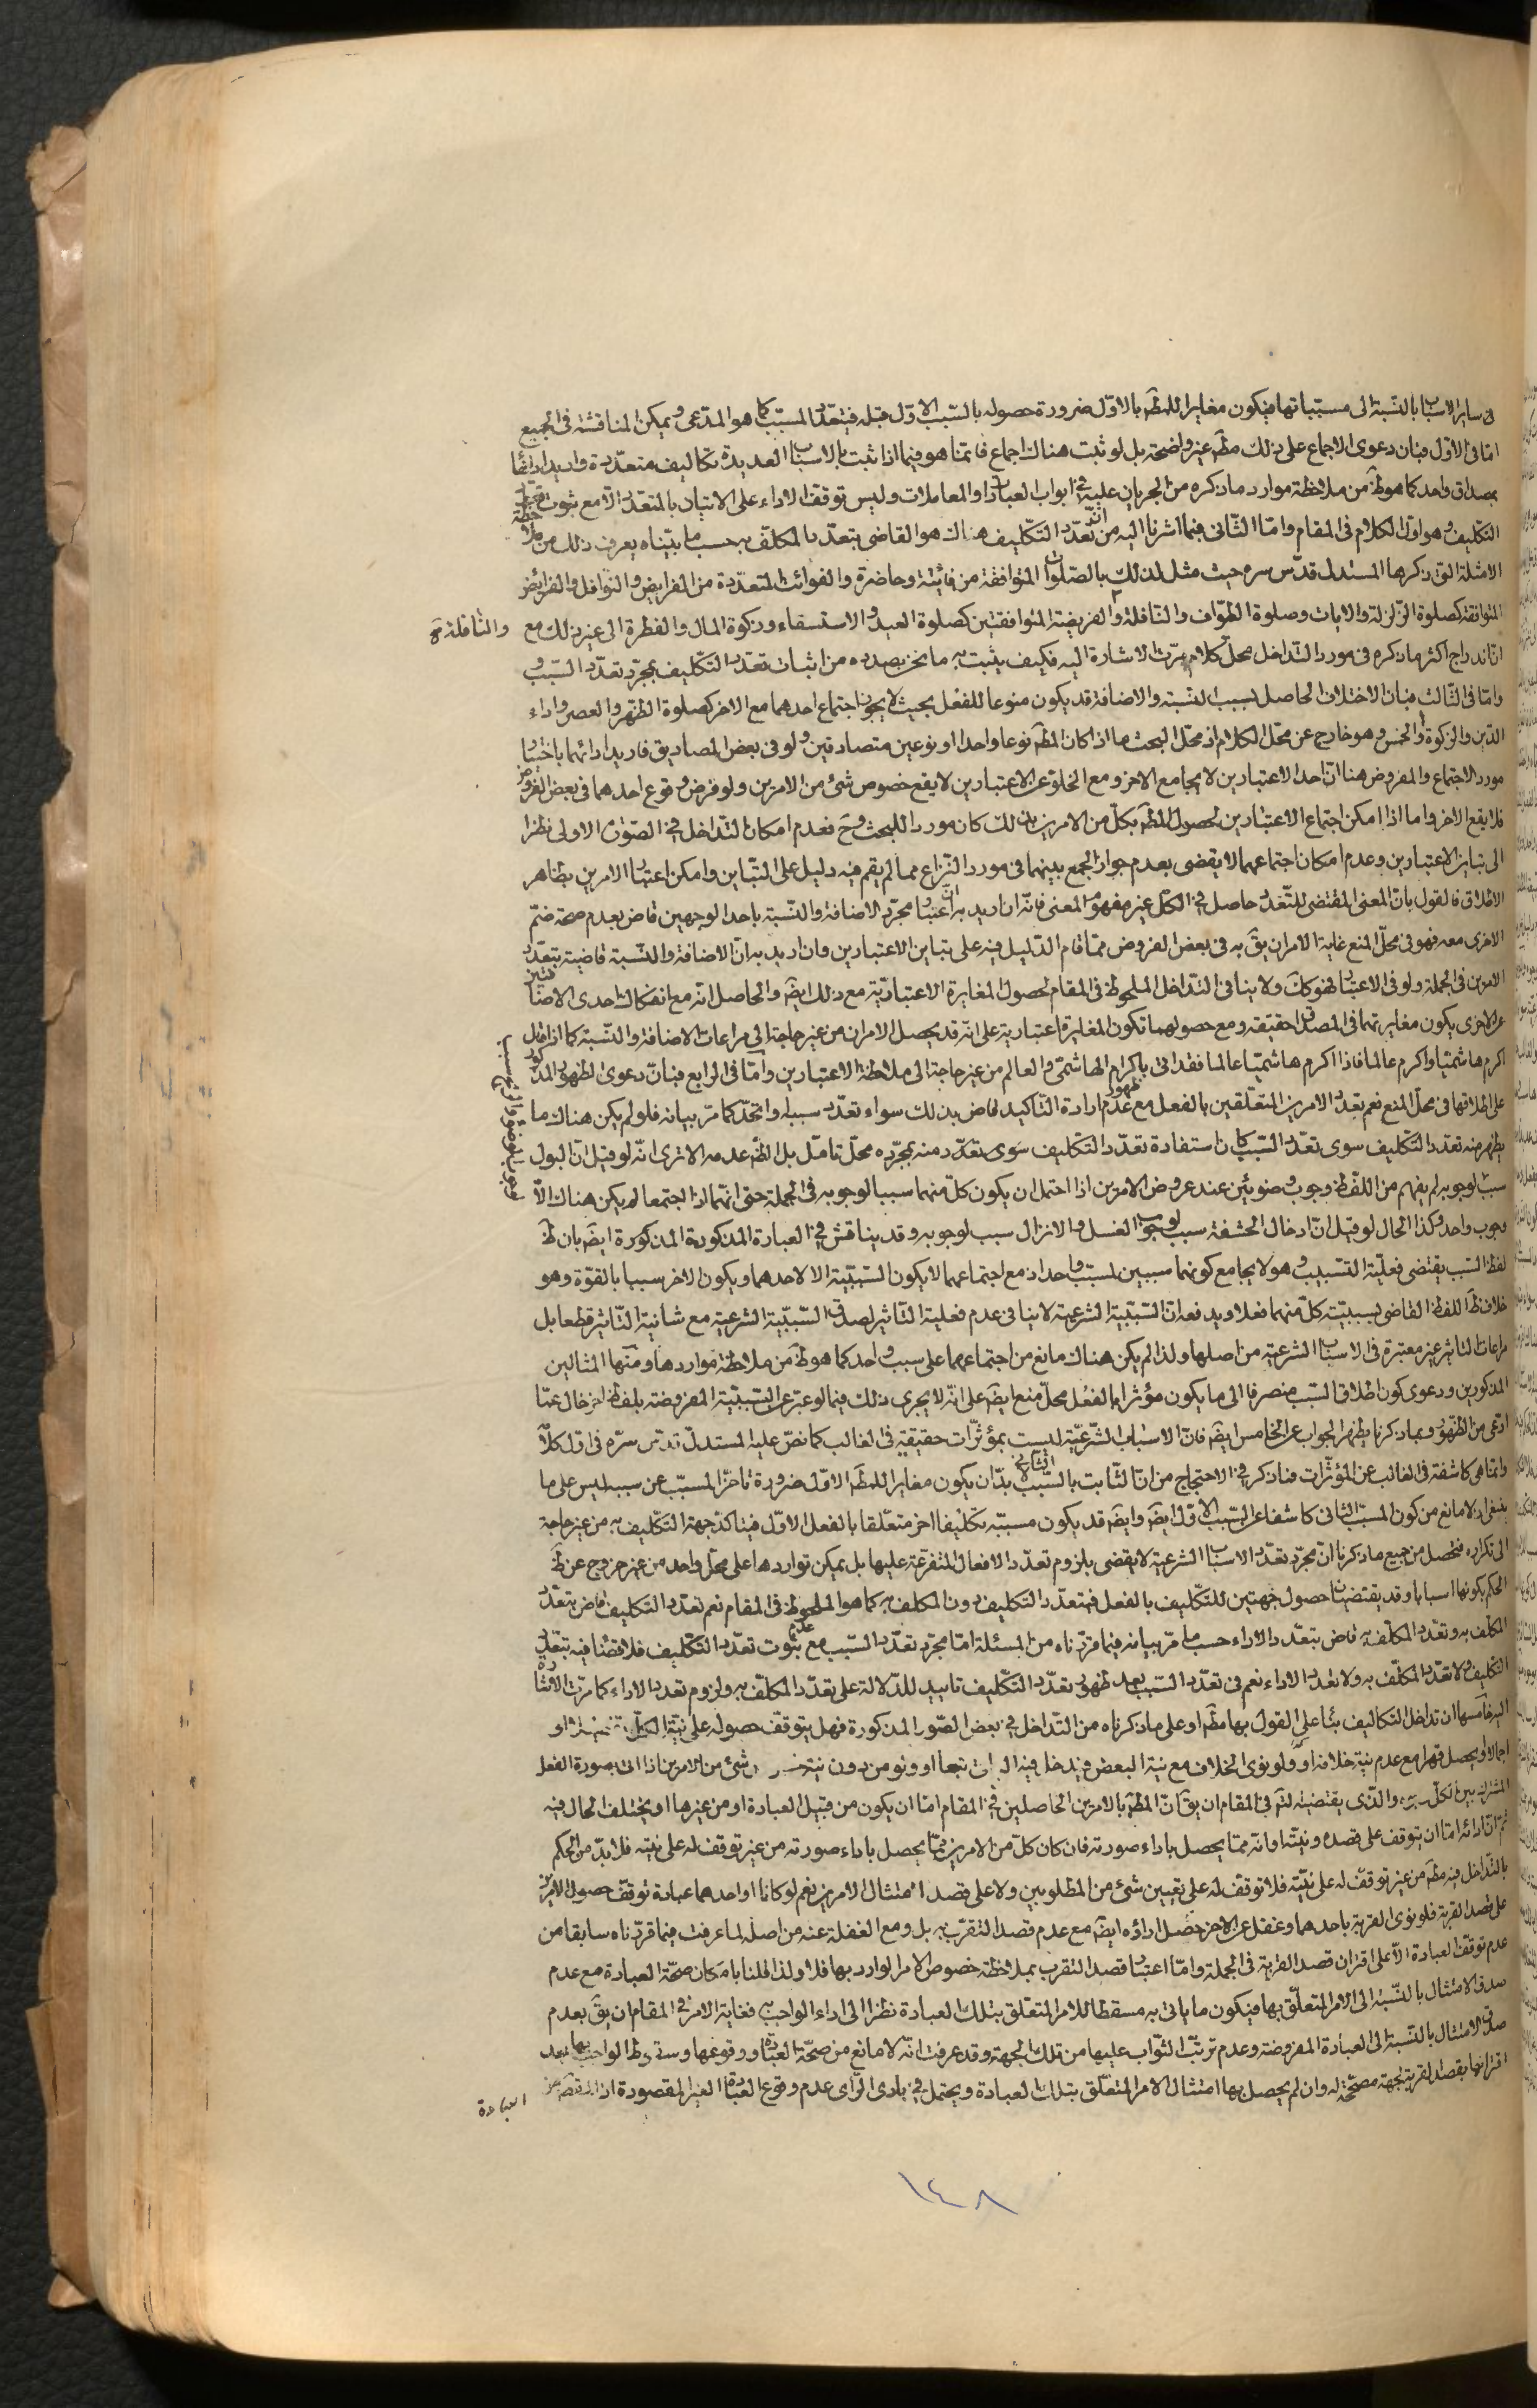 فى ساير الاسباب بالنسبة الى مسبباتها فيكون مغايرا للمط بالاول ضرورة حصوله بالسبب الاول قبله فيتعدد المسبب كما هو المدعى ويمكن المناقشة فى الجميع
اما فى الاول فبان دعوى الاجماع على ذلك مط غير واضحة بل لو ثبت هناك اجماع فانما هو فيما اذا ثبت بالاسباب العديدة تكاليف متعددة واريد ادائها
بمصداق واحد كما هو ظ من ملاحظة موارد ما ذكره من الجريان عليه فى ابواب العبادات والمعاملات وليس توقف الاداء على الاتيان بالمتعدد الا مع ثبوت تعدد
التكليف وهو اول الكلام فى المقام واما الثانى فبما اشرنا اليه من ان تعدد التكليف هناك هو القاضى بتعدد المكلف به حسب ما بيناه يعرف ذلك من ملاحظة
الامثلة التى ذكرها المستدل قدس سره حيث مثل لذلك بالصلوات المتوافقة من فائتة وحاضرة والفوائت المتعددة من الفرايض والنوافل والفرائض
المتوافقة كصلوة الزلزلة والايات وصلوة الطواف والنافلة والفريضة المتوافقتين كصلوة العيد والاستسقاء وزكوة المال والفطرة الى غير ذلك مع
والنافلة
ان اندراج اكثر ما ذكره فى مورد التداخل محل كلام مرت الاشارة اليه فكيف يثبت به ما نحن بصدده من اثبات تعدد التكليف بمجرد تعدد السبب و
واما فى الثالث فبان الاختلاف الحاصل بسبب النسبة والاضافة قد يكون منوعا للفعل بحيث لا يجوز اجتماع احدهما مع الاخر كصلوة الظهر والعصر واداء
الدين والزكوة والخمس وهو خارج عن محل الكلام اذ محل البحث ما اذا كان المط نوعا واحدا او نوعين متصادقين ولو فى بعض المصاديق فاريد ادائهما باختيار
مورد الاجتماع والمفروض هنا ان احد الاعتبارين لا يجامع الاخر ومع الخلو عن الاعتبارين لا يقع خصوص شئ من الامرين ولو فرض وقوع احدهما فى بعض الفروض
فلا يقع الاخر واما اذا امكن اجتماع الاعتبارين لحصول المط بكل من الامرين بذلك كان موردا للبحث وح فعدم امكان التداخل فى الصورة الاولى نظرا
الى تباين الاعتبارين وعدم امكان اجتماعهما لا يقضى بعدم جواز الجمع بينهما فى مورد النزاع مما لم يقم فيه دليل على التباين وامكن اعتبار الامرين بظاهر
الاطلاق فالقول بان المعنى المقتضى للتعدد حاصل فى الكل غير مفهوم المعنى فانه ان اريد به ان اعتبار مجرد الاضافة والنسبة باحد الوجهين قاض بعدم صحة ضم
الاخرى معه فهو فى محل المنع غاية الامر ان يق به فى بعض الفروض مما قام الدليل فيه على تباين الاعتبارين وان اريد به ان الاضافة والنسبة قاضية بتعدد
الامرين فى الجملة ولو فى الاعتبار فهو كك ولا ينافى التداخل الملحوظ فى المقام لحصول المغايرة الاعتبارية مع ذلك ايض والحاصل انه مع انفكاك احدى الاضافتين
عن الاخرى يكون مغايرتهما فى المصداق حقيقة ومع حصولهما تكون المغايرة اعتبارية على انه قد يحصل الامران من غير حاجة الى مراعات الاضافة والنسبة كما اذا قال
اكرم هاشميا واكرم عالما فاذا اكرم هاشميا عالما فقد اتى باكرام الهاشمى والعالم من غير حاجة الى ملاحظة الاعتبارين واما فى الرابع فبان دعوى الظهور المذكور
على اطلاقها فى محل المنع نعم تعدد الامرين المتعلقين بالفعل مع ظهور عدم ارادة التاكيد قاض بذلك سواء تعدد سبباه او اتحد كما مر بيانه فلو لم يكن هناك ما
يظهر منه تعدد التكليف سوى تعدد السبب كان استفادة تعدد التكليف سوى تعدد منه بمجرده محل تامل بل الظ عدمه الا ترى انه لو قيل ان البول
سبب لوجوبه لم يفهم من اللفظ وجوب وضوئين عند عروض الامرين اذا احتمل ان يكون كل منهما سببا لوجوبه فى الجملة حتى انهما اذا اجتمعا لم يكن هناك الا
وجوب واحد وكذا الحال لو قيل ان ادخال الحشفة سبب لوجوب الغسل والانزال سبب لوجوبه وقد يناقش فى العبارة المذكورة المذكورة ايض بان ظ
لفظ السبب يقتضى فعلية التسبيب وهو لا يجامع كونهما سببين لمسبب واحد اذ مع اجتماعهما لا يكون السببية الا لاحدهما ويكون الاخر سببا بالقوة وهو
خلاف ظ اللفظ القاضى بسببية كل منهما فعلا ويدفعه ان السببية الشرعية لا ينافى عدم فعلية التاثير لصدق السببية الشرعية مع شانية التاثير قطعا بل
مراعات التاثير غير معتبرة فى الاسباب الشرعية من اصلها ولذا لم يكن هناك مانع من اجتماعهما على سبب واحد كما هو ظ من ملاحظة مواردها ومنها المثالين
المذكورين ودعوى كون اطلاق السبب منصرفا الى ما يكون مؤثرا بالفعل محل منع ايض على انه لا يجرى ذلك فيما لو عبر عن السببية المفروضة بلفظ اخر خال عما
ادعى من الظهور وبما ذكرنا يظهر الجواب عن الخامس ايض فان الاسباب الشرعية ليست بمؤثرات حقيقية فى الغالب كما نص عليه المستدل قدس سره فى اول كلامه
وانما هى كاشفة فى الغالب عن المؤثرات فما ذكر فى الاحتجاج من ان الثابت بالسبب الثانى لا بد ان يكون مغايرا للمط الاول ضرورة تاخر المسبب عن سببه ليس على ما
ينبغى اذ لا مانع من كون المسبب الثانى كاشفا عن السبب الاول ايض وايض قد يكون مسببه تكليفا اخر متعلقا بالفعل الاول فيتاكد جهة التكليف به من غير حاجة
الى تكراره فتحصل من جميع ما ذكرنا ان مجرد تعدد الاسباب الشرعية لا يقضى بلزوم تعدد الافعال المتفرعة عليها بل يمكن تواردها على محل واحد من غير خروج عن ظ
الحكم بكونها اسبابا وقد يقتضيان حصول جهتين للتكليف بالفعل فيتعدد التكليف دون المكلف به كما هو الملحوظ فى المقام نعم تعدد التكليف قاض بتعدد
المكلف به وتعدد المكلف به قاض بتعدد الاداء حسب ما مر بيانه فيما قررناه من المسئلة اما مجرد تعدد السبب مع عدم ثبوت تعدد التكليف فلا قضاء فيه بتعدد
التكليف ولا تعدد المكلف به ولا تعدد الاداء نعم فى تعدد السبب بعد ظهور تعدد التكليف تاييد للدلالة على تعدد المكلف به ولزوم تعدد الاداء كما مرت الاشارة
اليه خامسها ان تداخل التكاليف بناء على القول بها مط او على ما ذكرناه من التداخل فى بعض الصور المذكورة فهل يتوقف حصوله على نية الكل
اجمالا او يحصل قهرا مع عدم نية خلافه او ولو نوى الخلاف مع نية البعض فيدخل فيه الباقى تبعا او ولو من دون نية شئ من الامرين اذا اتى بصورة الفعل
المشترك بين الكل والذى يقتضيه النظر فى المقام ان يق ان المط بالامرين الحاصلين فى المقام اما ان يكون من قبيل العبادة او من غيرها او يختلف الحال فيه
ثم ان ادائه اما ان يتوقف على قصده ونيته او انه مما يحصل باداء صورته فان كان كل من الامرين مما يحصل باداء صورته من غير توقف له على نيته فلا بد من الحكم
بالتداخل فيه مط من غير توقف له على نيته فلا توقف له على تعيين شئ من المطلوبين ولا على قصد امتثال الامرين نعم لو كانا او احدهما عبادة توقف حصول الامرين
على قصد القربة فلو نوى القربة باحدهما وغفل عن الاخر حصل اداؤه ايض مع عدم قصد التقرب به بل ومع الغفلة عنه من اصله لما عرفت فيما قررناه سابقا من
عدم توقف العبادة الا على اقتران قصد القربة فى الجملة واما اعتبار قصد التقرب بملاحظة خصوص الامر الوارد بها فلا ولذا قلنا بامكان صحة العبادة مع عدم
صدق الامتثال بالنسبة الى الامر المتعلق بها فيكون ما ياتى به مسقطا للامر المتعلق بتلك العبادة نظرا الى اداء الواجب به فغاية الامر فى المقام ان يق بعدم
صدق الامتثال بالنسبة الى العبادة المفروضة وعدم ترتب الثواب عليها من تلك الجهة وقد عرفت انه لا مانع من صحة العبادة ووقوعها وسقوط الواجب بها بعد
اقترانها بقصد القربة لجهة مصححة له وان لم يحصل بها امتثال الامر المتعلق بتلك العبادة ويحتمل فى بادى الراى عدم وقوع العبادة الغير المقصودة اذ
العبادة
١٤٨